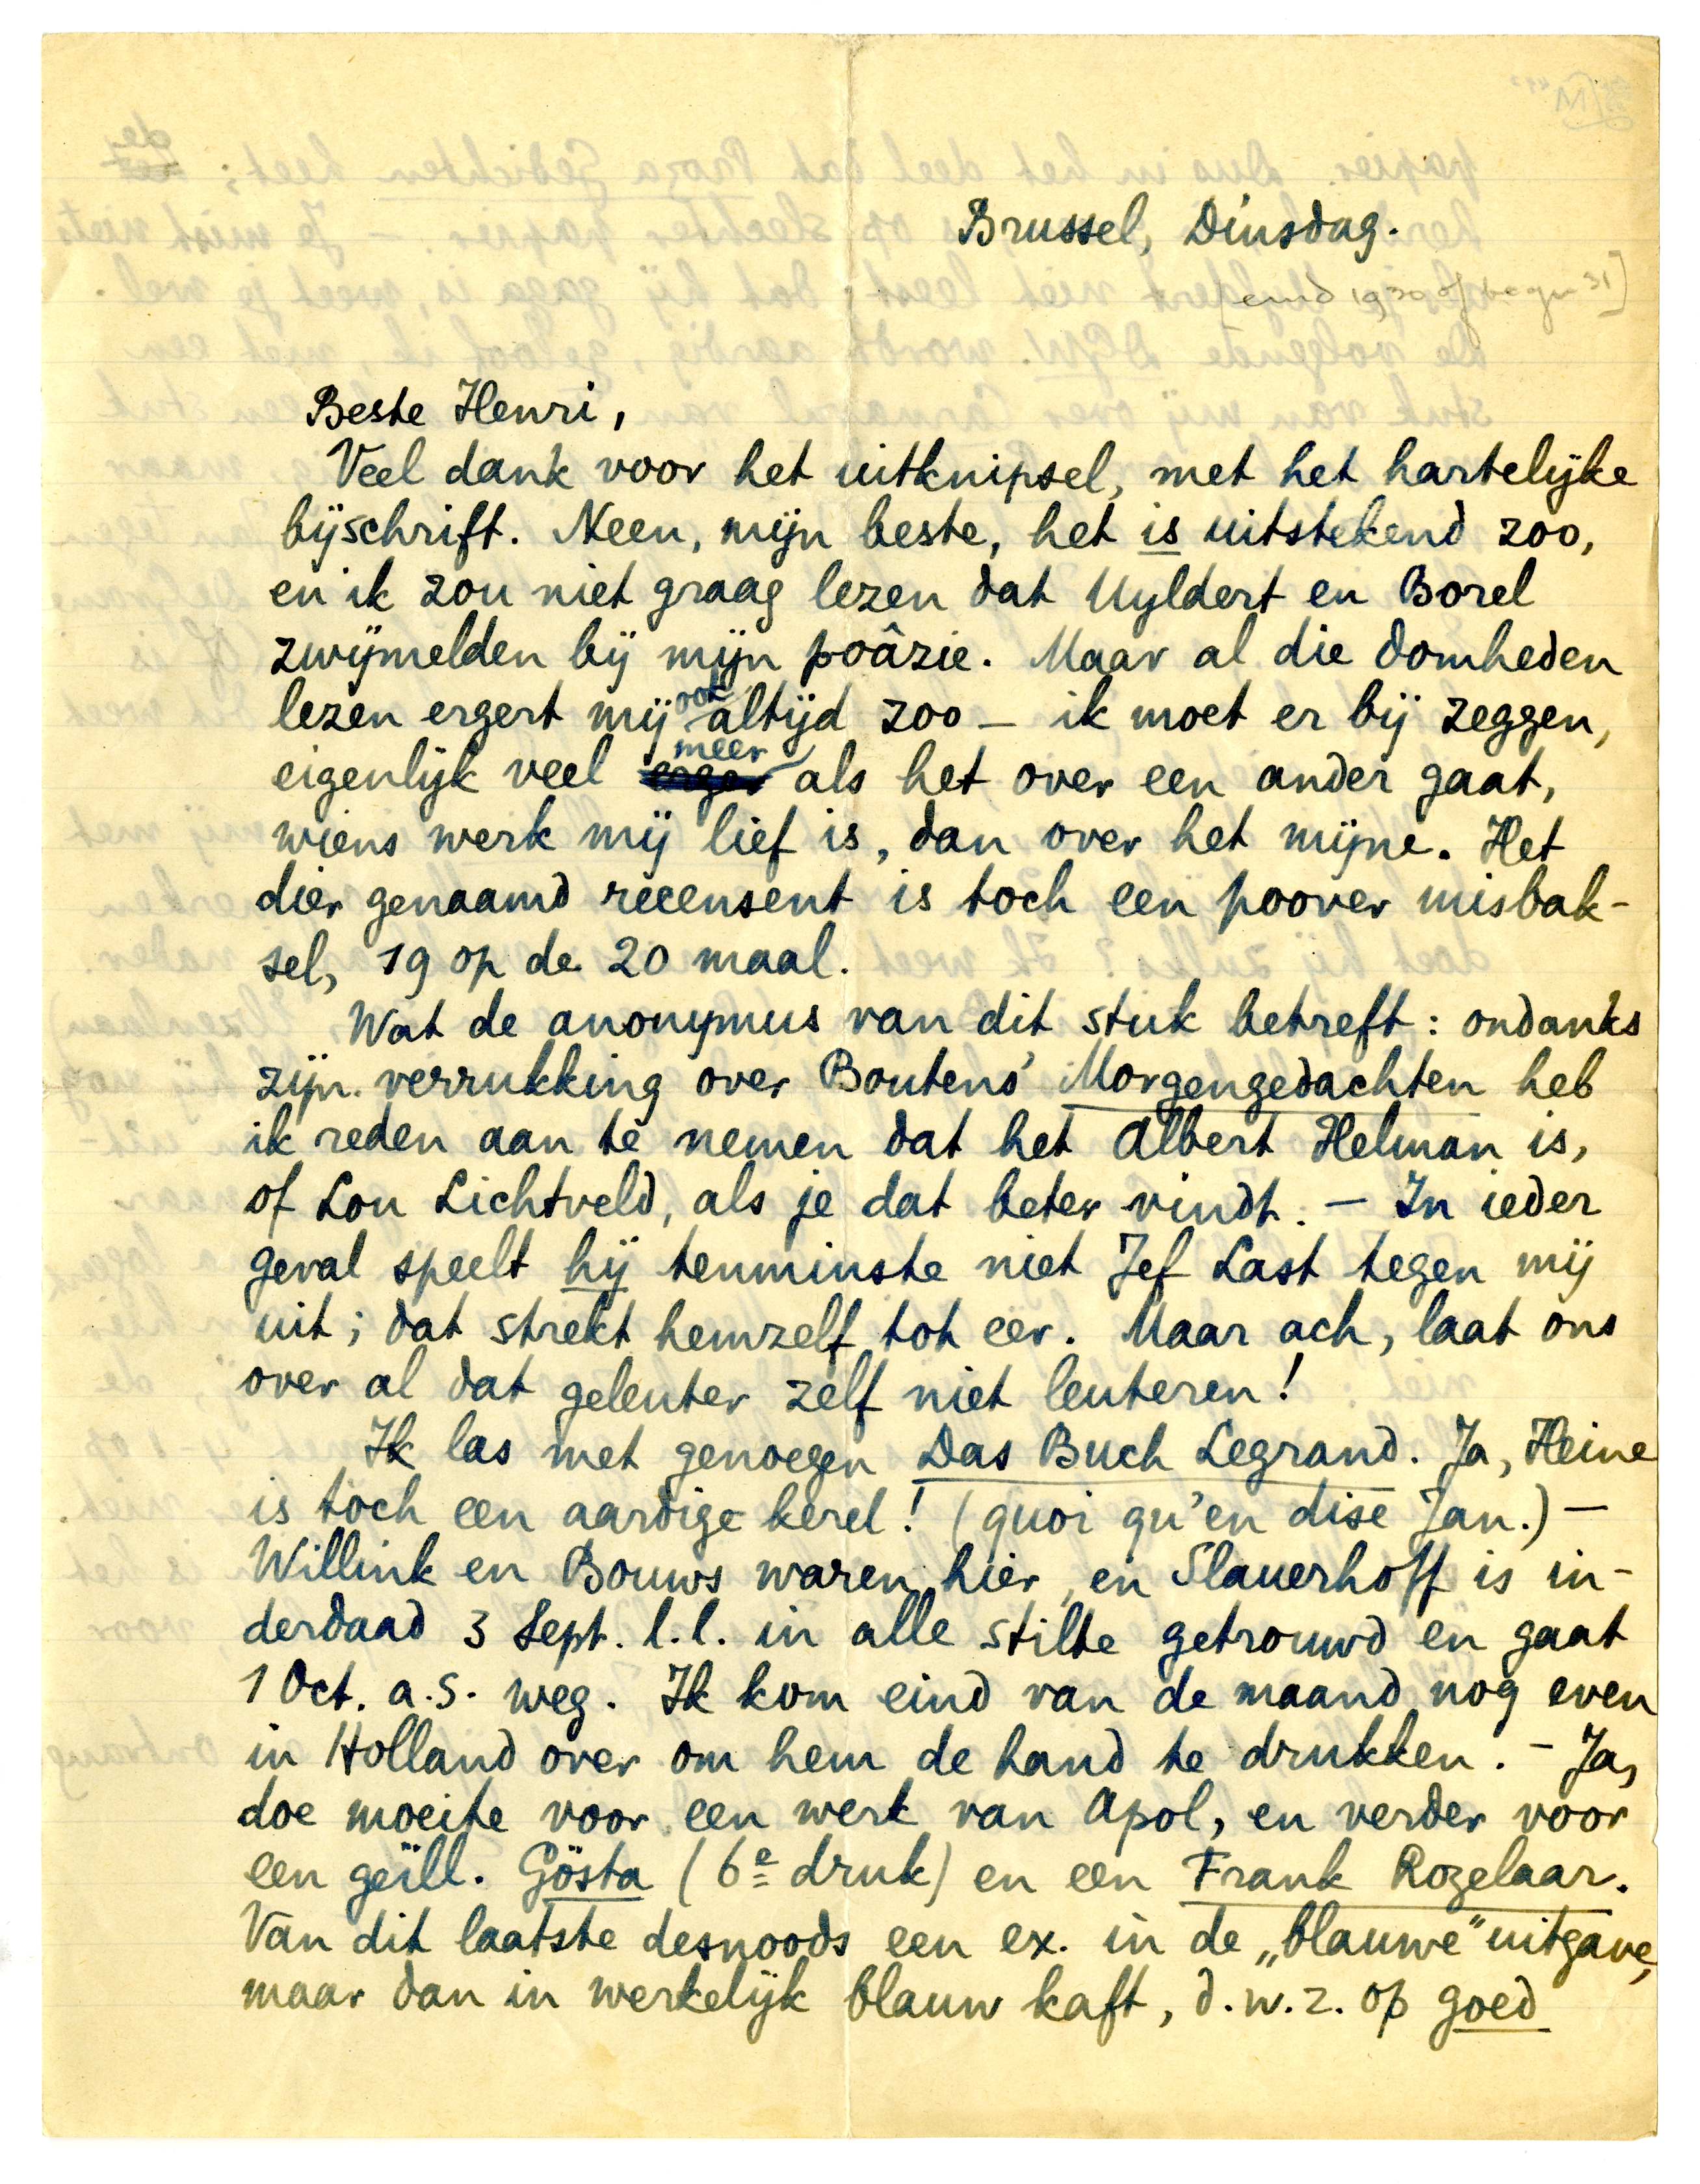 Brussel, Dinsdag.
[eind 1930 of begin 31]
Beste Henri,
Veel dank voor het uitknipsel, met het hartelijke
bijschrift. Neen, mijn beste, het is uitstekend zoo,
en ik zou niet graag lezen dat Uyldert en Borel
zwijmelden bij mijn poâzie. Maar al die domheden
lezen ergert mij ook altijd zoo — ik moet er bij zeggen,
eigenlijk veel meer als het over een ander gaat,
wiens werk mij lief is, dan over het mijne. Het
dier genaamd recensent is toch een poover misbak-
sel, 19 op de 20 maal.
Wat de anonymus van dit stuk betreft: ondanks
zijn verrukking over Boutens' Morgengedachten heb
ik reden aan te nemen dat het Albert Helman is,
of Lou Lichtveld, als je dat beter vindt. — In ieder
geval speelt hij tenminste niet Jef Last tegen mij
uit; dat strekt hemzelf tot eer. Maar ach, laat ons
over al dat geleuter zelf niet leuteren!
Ik las met genoegen Das Buch Legrand. Ja, Heine
is toch een aardige kerel! (quoi qu'en dise Jan.) —
Willink en Bouws waren hier, en Slauerhoff is in-
derdaad 3 Sept. l.l. in alle stilte getrouwd en gaat
1 Oct. a.s. weg. Ik kom eind van de maand nog even
in Holland over om hem de hand te drukken. — Ja,
doe moeite voor een werk van Apol, en verder voor
een geïll. Gösta (6e druk) en een Frank Rozelaar.
Van dit laatste desnoods een ex. in de „blauwe" uitgave,
maar dan in werkelijk blauw kaft, d.w.z. op goed